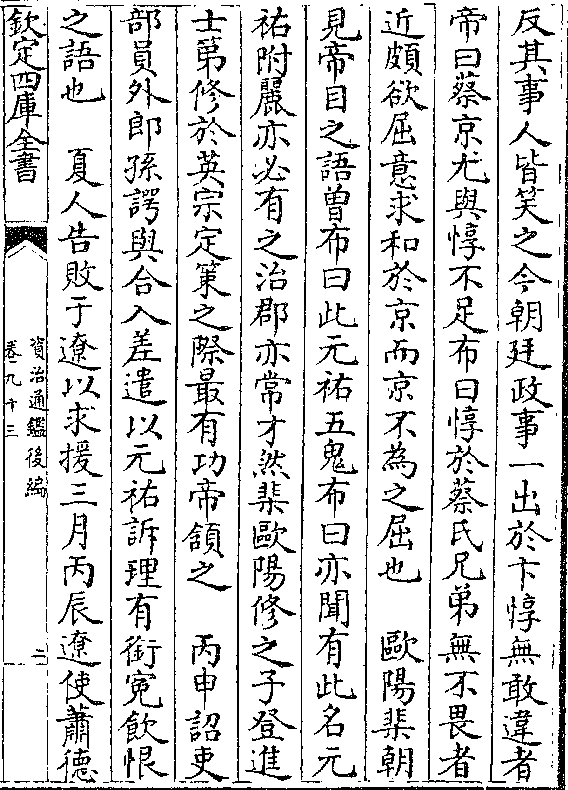 反其事人皆笑之今朝廷政事一出於卞惇無敢違者
帝曰蔡京尤與惇不足布曰惇於蔡氏兄弟無不畏者
近頗欲屈意求和於京而京不為之屈也　歐陽棐朝
見帝目之語曾布曰此元祐五鬼布曰亦聞有此名元
祐附麗亦必有之治郡亦常才然棐歐陽修之子登進
士第修於英宗定策之際最有功帝頷之　丙申詔吏
部員外郎孫諤與合入差遣以元祐訴理有銜冤飲恨
之語也　夏人告敗于遼以求援三月丙辰遼使蕭德
欽定四庫全書
資治通鑑後編
卷九十三
二